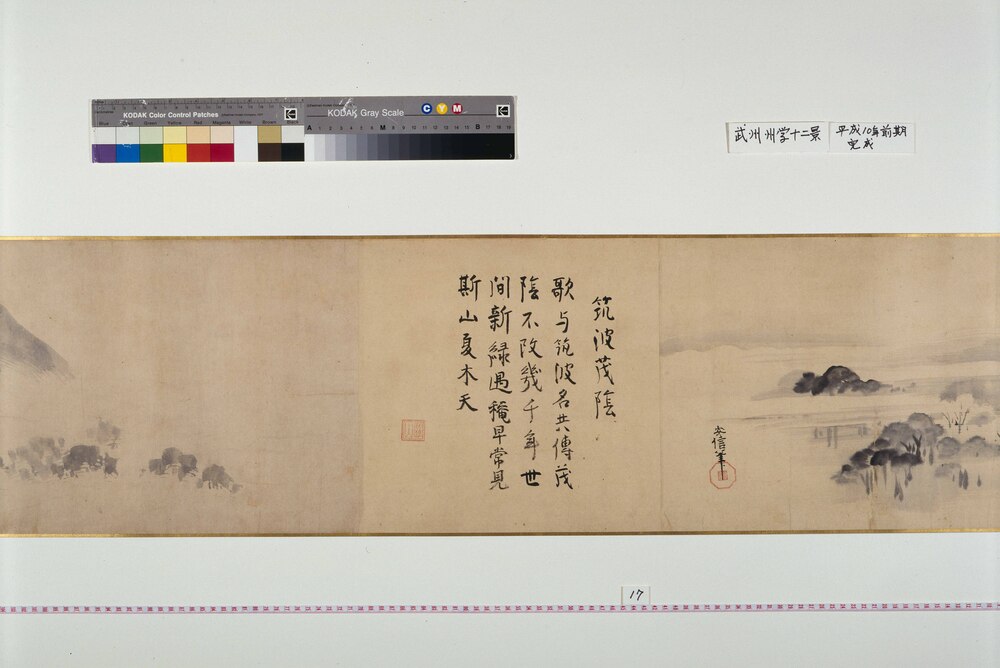 KODAK Color Control Patches
Blue Cyan Green Yellow Red Magenta White Brown Black
KODAK Gray Scale
C Y M
A 1 2 3 4 5 6 M 8 9 10 11 12 13 14 15 B 17 18 19
武州州学十二景
平成10年前期
完成
筑波茂陰
歌与筑波名共傳茂
陰不改幾千年世
間新緑遇穐早常見
斯山夏木天
安信筆
17